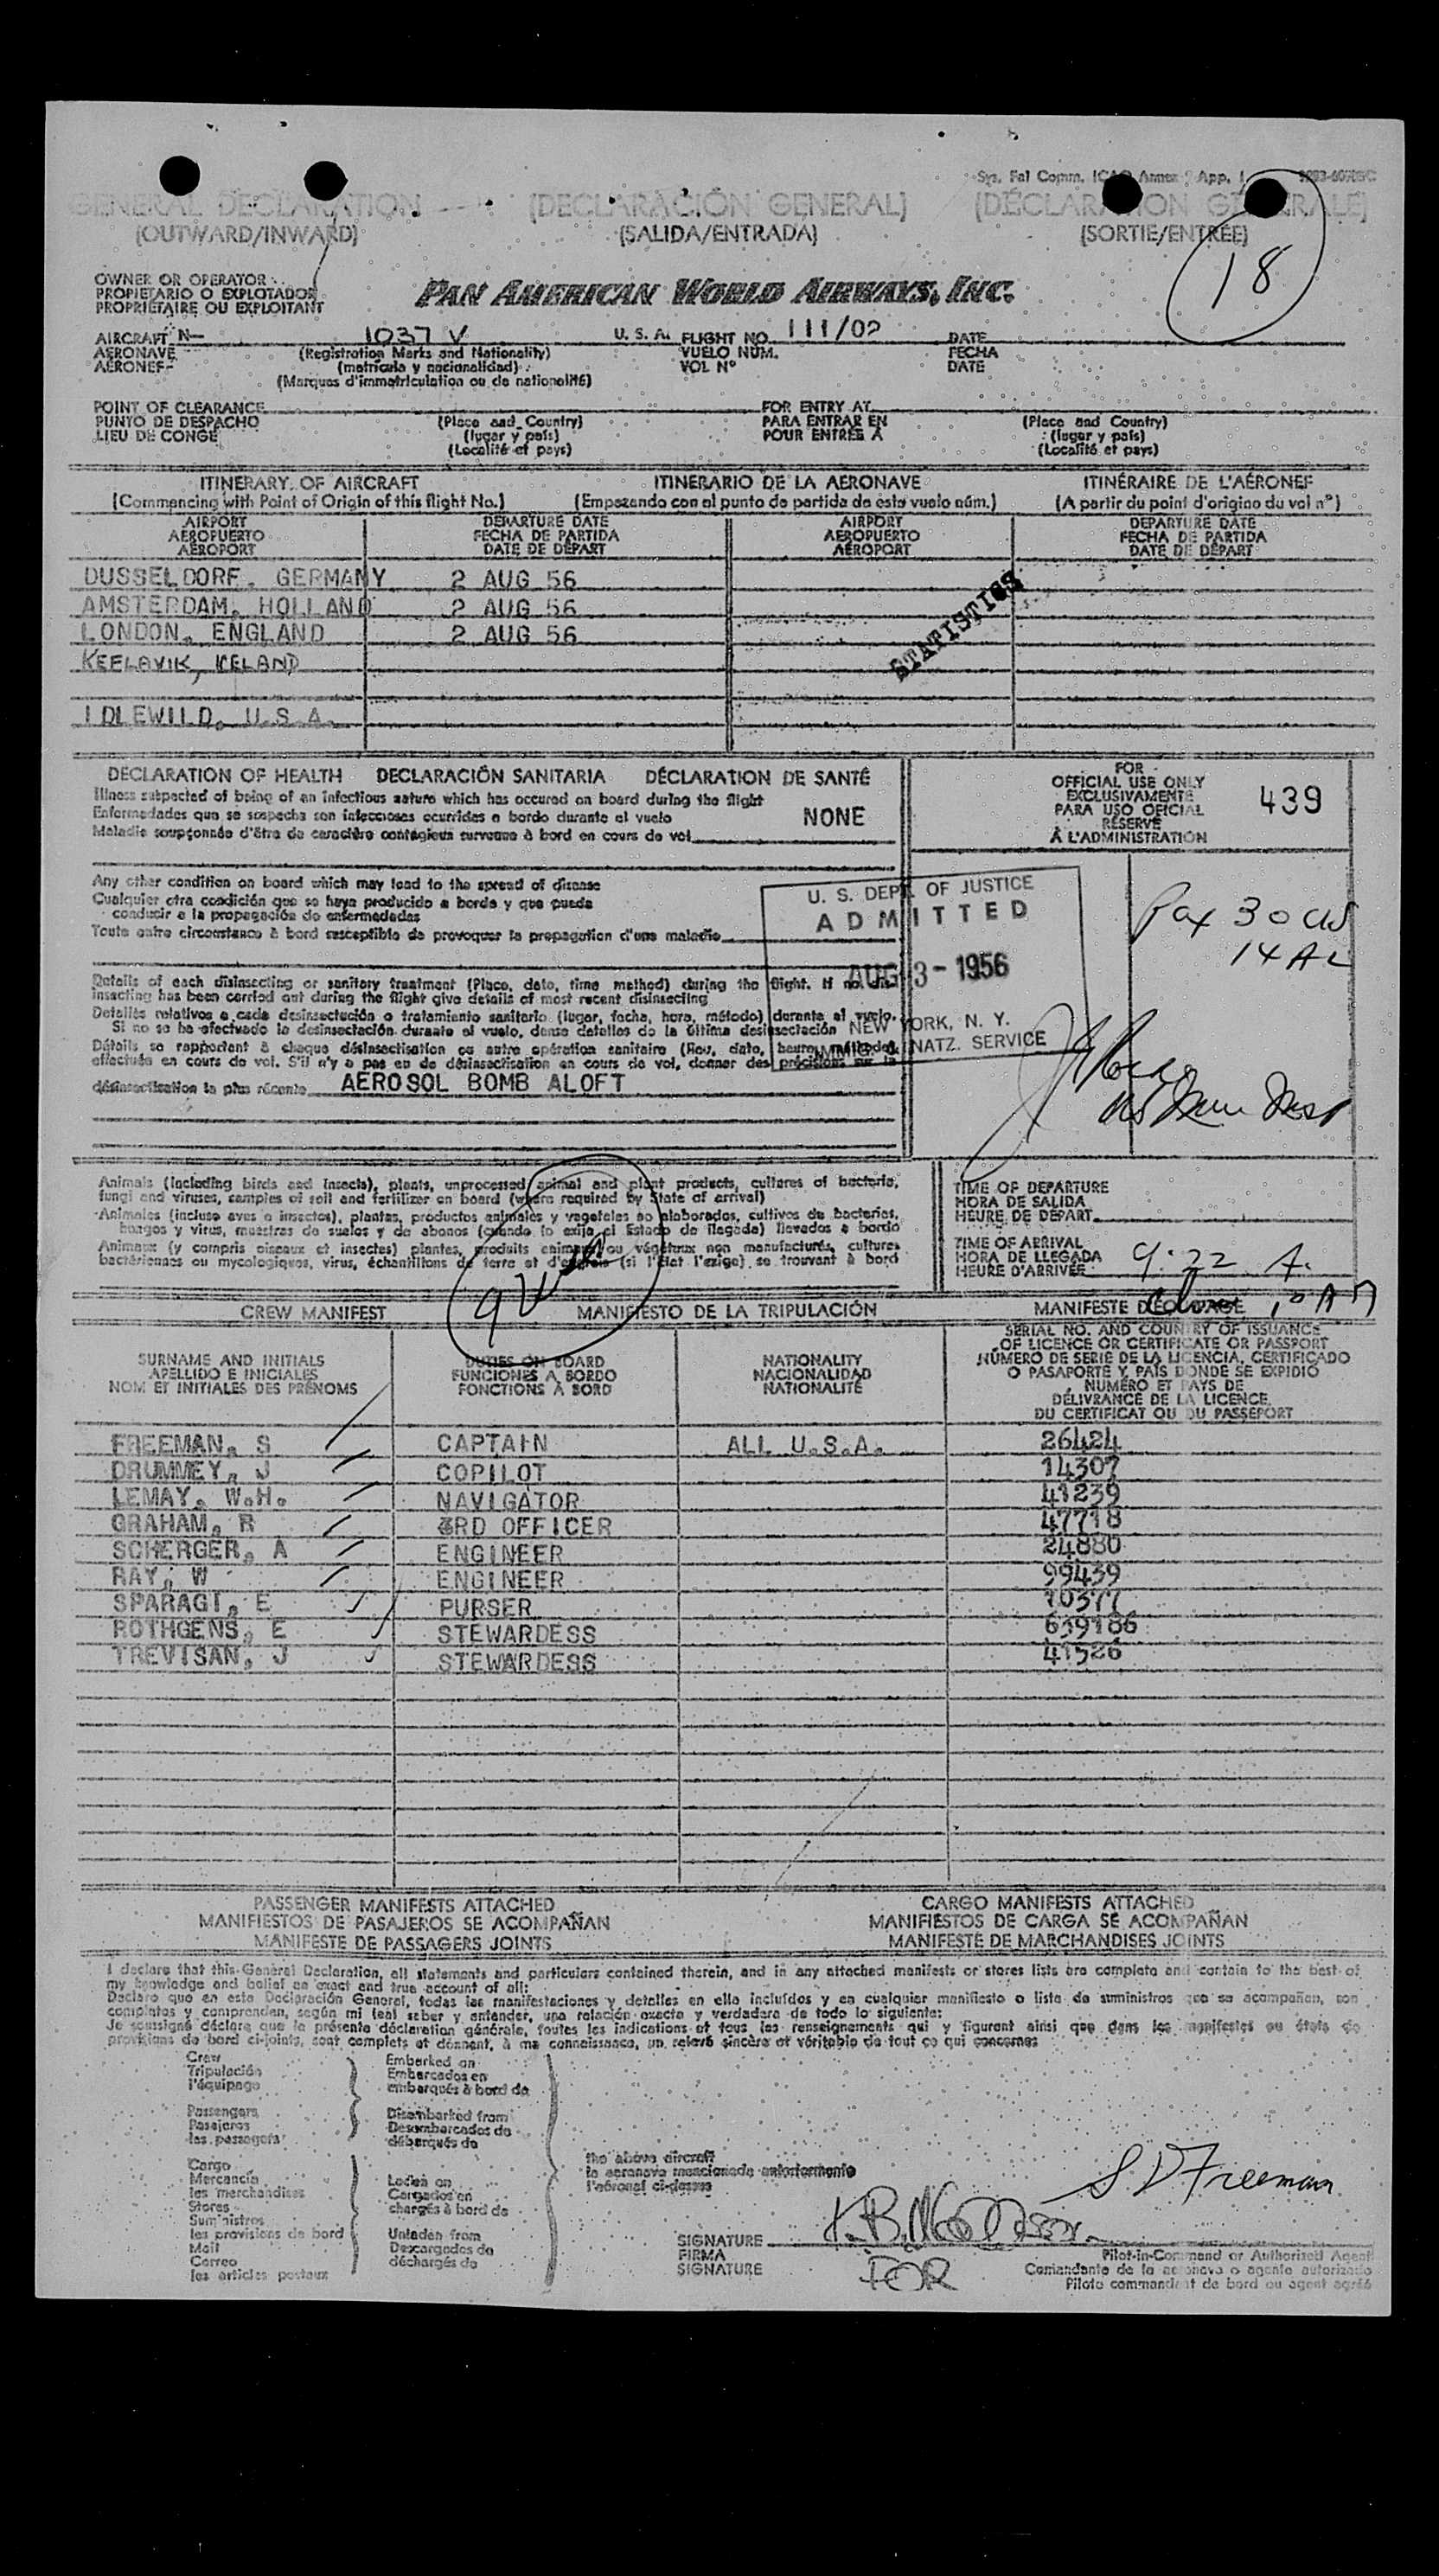 Sys. Fal Comm. ICAO Annex 9 App. 1
GENERAL DECLARATION (DECLARACIÓN GENERAL) (DÉCLARATION GÉNÉRALE)
(OUTWARD/INWARD) (SALIDA/ENTRADA) (SORTIE/ENTRÉE)
18
OWNER OR OPERATOR
PROPIETARIO O EXPLOTADOR
PROPRIÉTAIRE OU EXPLOITANT
PAN AMERICAN WORLD AIRWAYS, INC.
AIRCRAFT N- 1037 V U. S. A. FLIGHT NO. 111/02 DATE
AERONAVE (Registration Marks and Nationality) VUELO NÚM. FECHA
AÉRONEF (matrícula y nacionalidad) VOL Nº DATE
(Marques d'immatriculation ou de nationalité)
POINT OF CLEARANCE FOR ENTRY AT
PUNTO DE DESPACHO (Place and Country) PARA ENTRAR EN (Place and Country)
LIEU DE CONGÉ (lugar y país) POUR ENTRÉE À (lugar y país)
(Localité et pays) (Localité et pays)
ITINERARY OF AIRCRAFT ITINERARIO DE LA AERONAVE ITINÉRAIRE DE L'AÉRONEF
(Commencing with Point of Origin of this flight No.) (Empezando con el punto de partida de este vuelo núm.) (A partir du point d'origine du vol nº)
AIRPORT DEPARTURE DATE AIRPORT DEPARTURE DATE
AEROPUERTO FECHA DE PARTIDA AEROPUERTO FECHA DE PARTIDA
AÉROPORT DATE DE DÉPART AÉROPORT DATE DE DÉPART
DUSSELDORF, GERMANY 2 AUG 56
AMSTERDAM, HOLLAND 2 AUG 56
LONDON, ENGLAND 2 AUG 56
KEFLAVIK, ICELAND
STATISTICS
IDLEWILD, U.S.A.
DECLARATION OF HEALTH DECLARACIÓN SANITARIA DÉCLARATION DE SANTÉ
Illness suspected of being of an infectious nature which has occured on board during the flight
Enfermedades que se sospecha son infecciosas ocurridas a bordo durante el vuelo NONE
Maladie soupçonnée d'être de caractère contagieux survenue à bord en cours de vol
FOR
OFFICIAL USE ONLY
EXCLUSIVAMENTE
PARA USO OFICIAL
RÉSERVÉ
À L'ADMINISTRATION
439
Any other condition on board which may lead to the spread of disease
Cualquier otra condición que se haya producido a bordo y que pueda
conducir a la propagación de enfermedades
Toute autre circonstance à bord susceptible de provoquer la propagation d'une maladie
U. S. DEPT. OF JUSTICE
ADMITTED
AUG 3 - 1956
NEW YORK, N. Y.
IMMIG. & NATZ. SERVICE
Pax 30 US
14 AL
Details of each disinsecting or sanitary treatment (Place, date, time method) during the flight. If no dis-
insecting has been carried out during the flight give details of most recent disinsecting
Detalles relativos a cada desinsectación o tratamiento sanitario (lugar, fecha, hora, método) durante el vuelo.
Si no se ha efectuado la desinsectación durante el vuelo, dense detalles de la última desinsectación
Détails se rapportant à chaque désinsectisation ou autre opération sanitaire (lieu, date, heure, méthode)
effectuée en cours de vol. S'il n'y a pas eu de désinsectisation en cours de vol, donner des précisions sur la
désinsectisation la plus récente AEROSOL BOMB ALOFT
Animals (including birds and insects), plants, unprocessed animal and plant products, cultures of bacteria,
fungi and viruses, samples of soil and fertilizer on board (where required by State of arrival)
Animales (incluso aves e insectos), plantas, productos animales y vegetales no elaborados, cultivos de bacterias,
hongos y virus, muestras de suelos y de abonos (cuando lo exija el Estado de llegada) llevados a bordo
Animaux (y compris oiseaux et insectes) plantes, produits animaux ou végétaux non manufacturés, cultures
bactériennes ou mycologiques, virus, échantillons de terre et d'engrais (si l'État l'exige) se trouvant à bord
TIME OF DEPARTURE
HORA DE SALIDA
HEURE DE DÉPART
TIME OF ARRIVAL
HORA DE LLEGADA
HEURE D'ARRIVÉE 9:22 A.
CREW MANIFEST MANIFIESTO DE LA TRIPULACIÓN MANIFESTE D'ÉQUIPAGE 10 AM
SURNAME AND INITIALS
APELLIDO E INICIALES
NOM ET INITIALES DES PRÉNOMS
DUTIES ON BOARD
FUNCIONES A BORDO
FONCTIONS À BORD
NATIONALITY
NACIONALIDAD
NATIONALITÉ
SERIAL NO. AND COUNTRY OF ISSUANCE
OF LICENCE OR CERTIFICATE OR PASSPORT
NÚMERO DE SERIE DE LA LICENCIA, CERTIFICADO
O PASAPORTE Y PAÍS DONDE SE EXPIDIÓ
NUMÉRO ET PAYS DE
DÉLIVRANCE DE LA LICENCE,
DU CERTIFICAT OU DU PASSEPORT
FREEMAN, S CAPTAIN ALL U.S.A. 26424
DRUMMEY, J COPILOT 14307
LEMAY, W.H. NAVIGATOR 41239
GRAHAM, R 3RD OFFICER 47718
SCHERGER, A ENGINEER 24880
RAY, W ENGINEER 99439
SPARAGT, E PURSER 10377
ROTHGENS, E STEWARDESS 639186
TREVISAN, J STEWARDESS 41526
PASSENGER MANIFESTS ATTACHED CARGO MANIFESTS ATTACHED
MANIFIESTOS DE PASAJEROS SE ACOMPAÑAN MANIFIESTOS DE CARGA SE ACOMPAÑAN
MANIFESTE DE PASSAGERS JOINTS MANIFESTE DE MARCHANDISES JOINTS
I declare that this General Declaration, all statements and particulars contained therein, and in any attached manifests or stores lists are complete and contain to the best of
my knowledge and belief an exact and true account of all:
Declaro que en esta Declaración General, todas las manifestaciones y detalles en ella incluídos y en cualquier manifiesto o lista de suministros que se acompañan, son
completos y comprenden, según mi leal saber y entender, una relación exacta y verdadera de todo lo siguiente:
Je soussigné déclare que la présente déclaration générale, toutes les indications et tous les renseignements qui y figurent ainsi que dans les manifestes ou états de
provisions de bord ci-joints, sont complets et donnent, à ma connaissance, un relevé sincère et véritable de tout ce qui concerne:
Crew Embarked on
Tripulación Embarcados en
l'équipage embarqués à bord de
Passengers Disembarked from
Pasajeros Desembarcados de
les passagers débarqués de
the above aircraft
la aeronave mencionada anteriormente
l'aéronef ci-dessus
Cargo
Mercancía Laden on
les merchandises Cargados en
Stores chargés à bord de
Suministros
les provisions de bord Unladen from
Mail Descargados de
Correo déchargés de
les articles postaux
S D Freeman
SIGNATURE
FIRMA
SIGNATURE
FOR
Pilot-in-Command or Authorized Agent
Comandante de la aeronave o agente autorizado
Pilote commandant de bord ou agent agréé